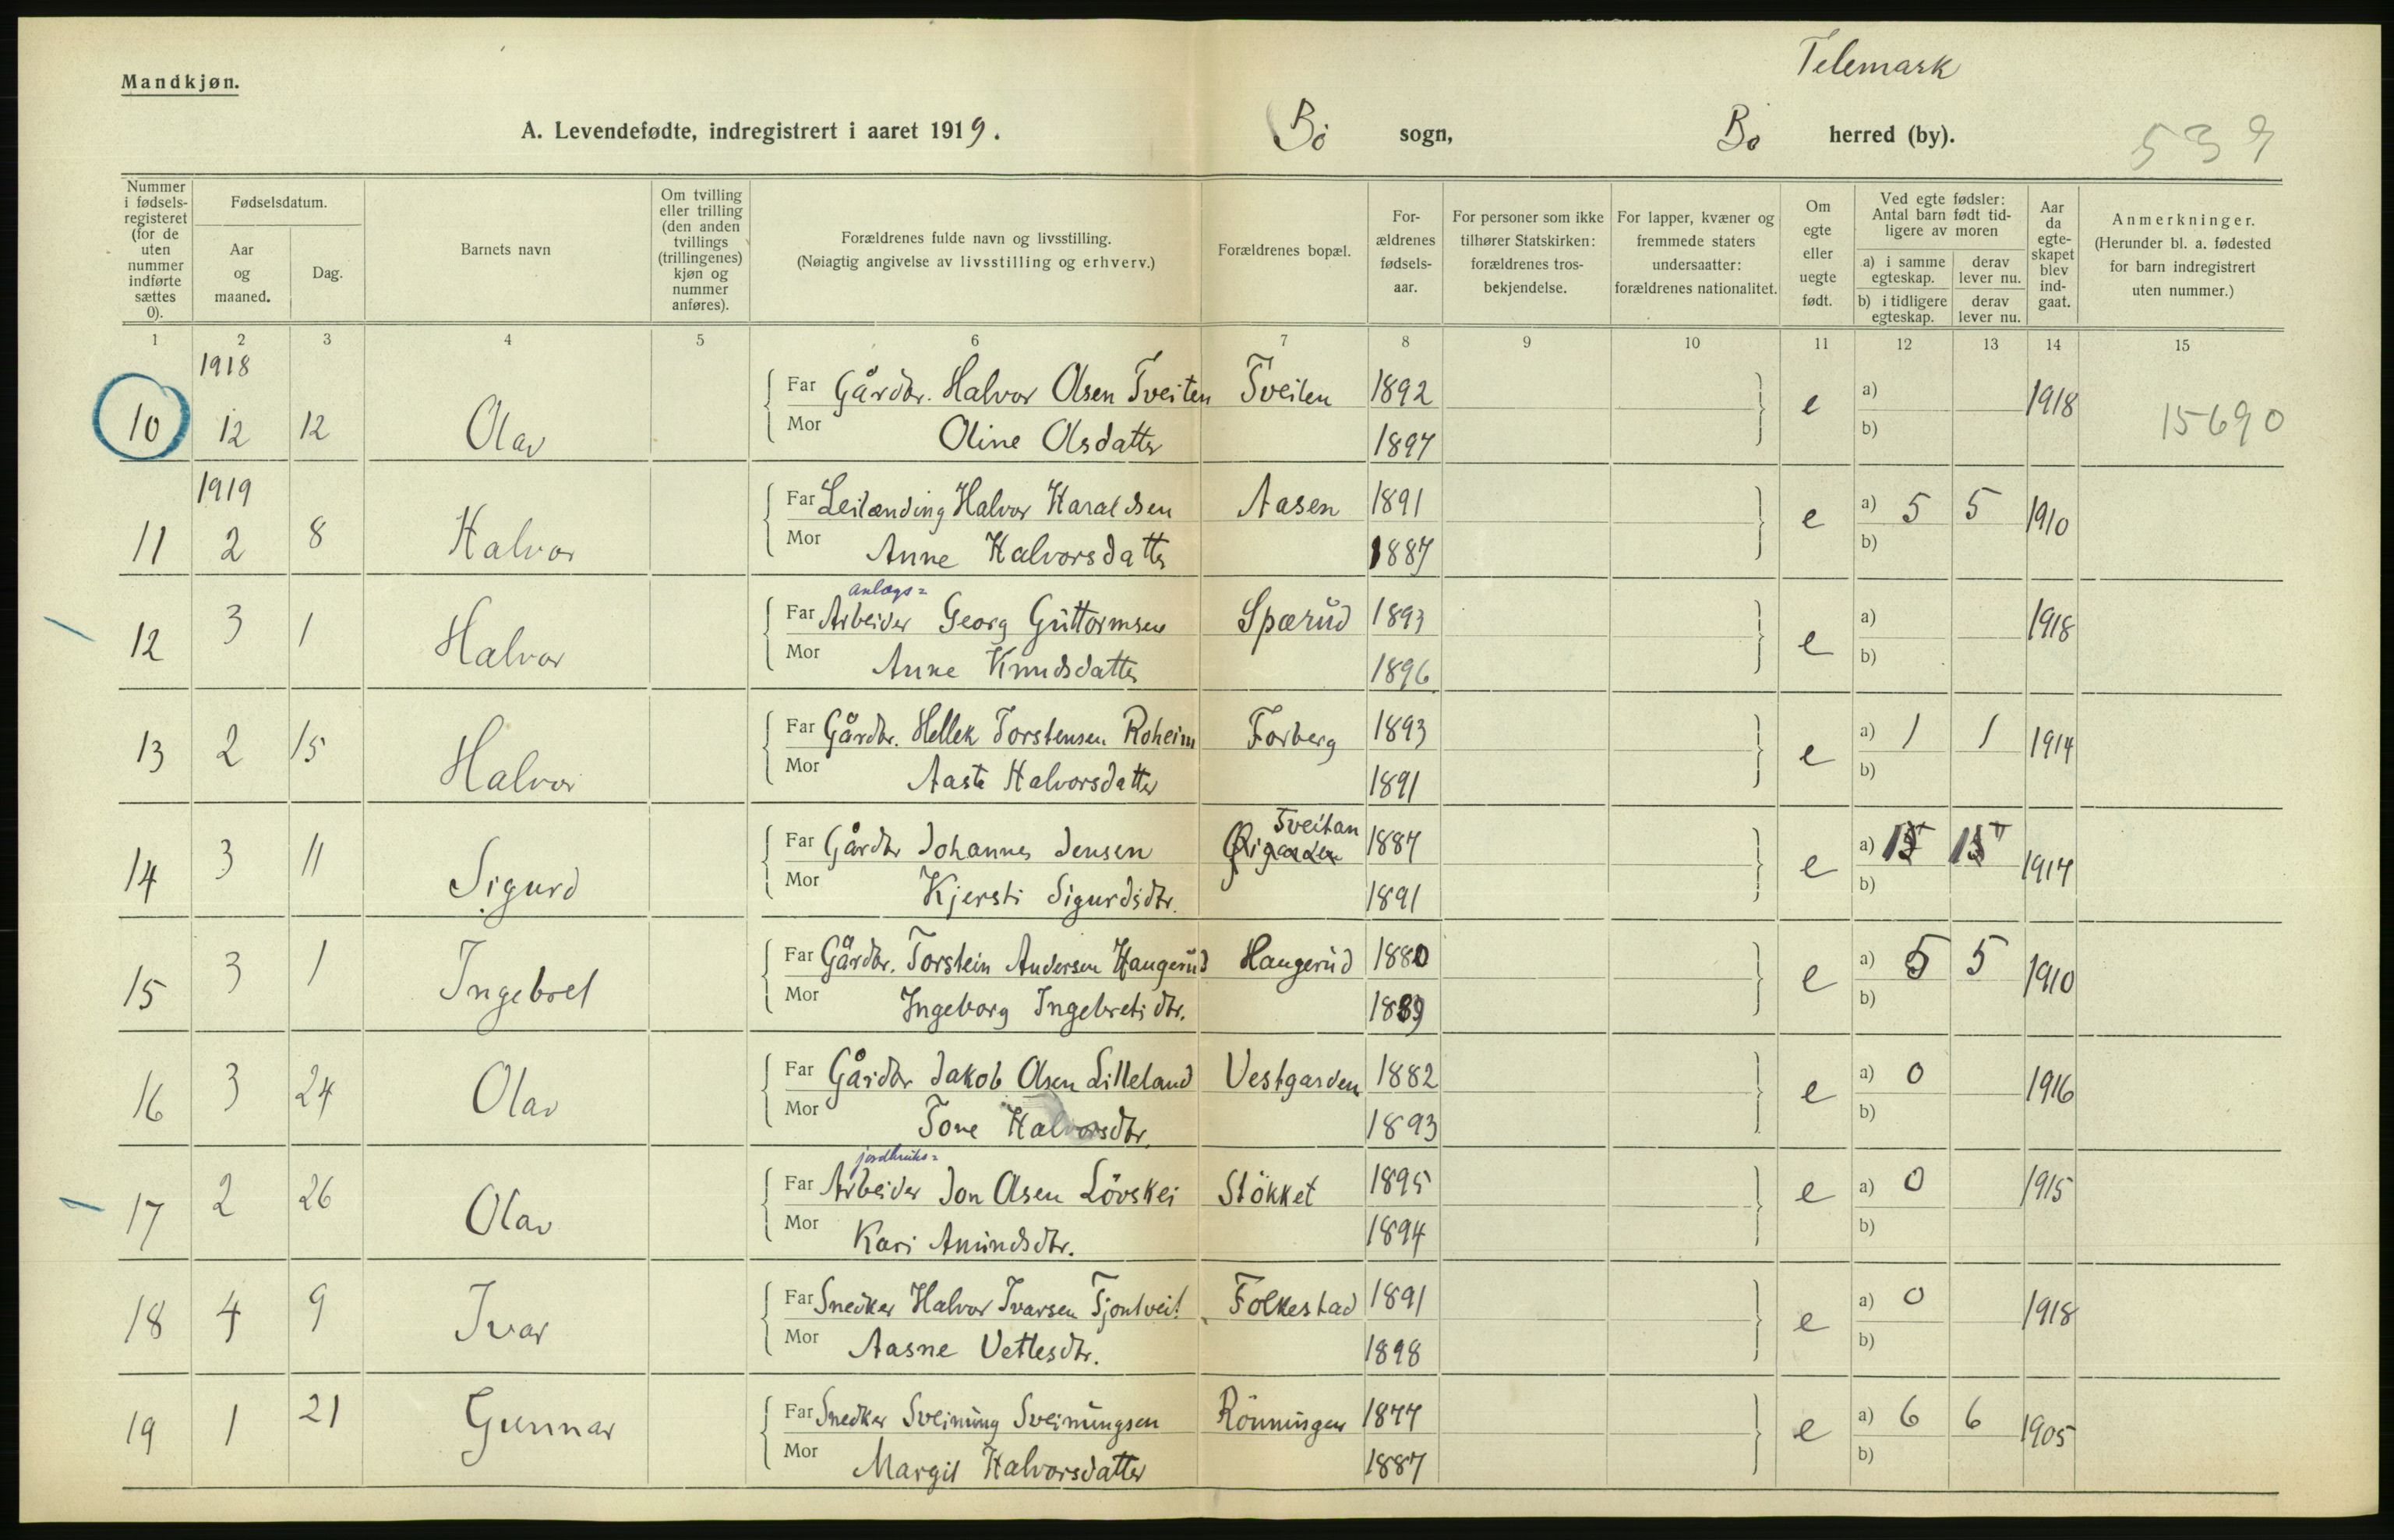 Telemark
Mandkjøn.
A. Levendefødte, indregistrert i aaret 1919. Bö sogn, Bø herred (by). 539
Nummer i fødsels-registeret (for de uten nummer indførte sættes 0).
Fødselsdatum.
Aar og maaned.
Dag.
Barnets navn
Om tvilling eller trilling (den anden tvillings (trillingenes) kjøn og nummer anføres).
Forældrenes fulde navn og livsstilling.
(Nøiagtig angivelse av livsstilling og erhverv.)
Forældrenes bopæl.
For-ældrenes fødsels-aar.
For personer som ikke tilhører Statskirken: forældrenes tros-bekjendelse.
For lapper, kvæner og fremmede staters undersaatter: forældrenes nationalitet.
Om egte eller uegte født.
Ved egte fødsler: Antal barn født tid-ligere av moren
a) i samme egteskap. derav lever nu.
b) i tidligere egteskap. derav lever nu.
Aar da egte-skapet blev ind-gaat.
Anmerkninger.
(Herunder bl. a. fødested for barn indregistrert uten nummer.)
1 2 3 4 5 6 7 8 9 10 11 12 13 14 15
1918
10 12 12 Olav Far Gårdbr. Halvor Olsen Tveiten Tveiten 1892 e a) 1918 15690
Mor Oline Olsdatter 1897 b)
1919
11 2 8 Halvor Far Leilænding Halvor Haraldsen Aasen 1891 e a) 5 5 1910
Mor Anne Halvorsdatter 1887 b)
anlægs=
12 3 1 Halvor Far Arbeider Georg Guttormsen Spærud 1893 e a) 1918
Mor Anne Knudsdatter 1896 b)
13 2 15 Halvor Far Gårdbr. Hellek Torstensen Roheim Forberg 1893 e a) 1 1 1914
Mor Aaste Halvorsdatter 1891 b)
Tveitan
14 3 11 Sigurd Far Gårdbr Johannes Jensen 1887 e a) 1917
Mor Kjersti Sigurdsdtr. 1891 b)
15 3 1 Ingebret Far Gårdbr. Torstein Andersen Haugerud Haugerud 1880 e a) 5 5 1910
Mor Ingeborg Ingebretsdtr. 1889 b)
16 3 24 Olav Far Gårdbr Jakob Olsen Lilleland Vestgarden 1882 e a) 0 1916
Mor Tone Halvorsdtr. 1893 b)
jordbruks=
17 2 26 Olav Far Arbeider Jon Olsen Lövskei Stökket 1895 e a) 0 1915
Mor Kari Amundsdtr. 1894 b)
18 4 9 Ivar Far Snedker Halvor Ivarsen Tjontveit Folkestad 1891 e a) 0 1918
Mor Aasne Vetlesdtr. 1898 b)
19 1 21 Gunnar Far Snedker Sveinung Sveinungsen Rönningen 1877 e a) 6 6 1905
Mor Margit Halvorsdatter 1887 b)